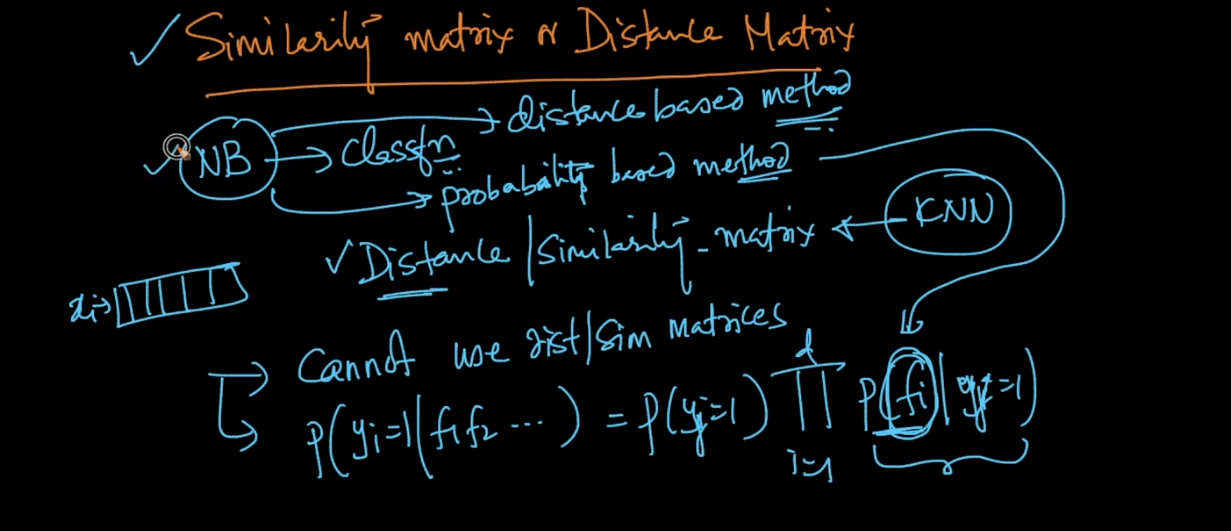 Similarity matrix or Distance Matrix
distance based method
NB → Classfn
probability based method
KNN
Distance / Similarity - matrix
xi →
Cannot use dist/sim matrices
P(yi=1|f1f2...) = P(yi=1) ∏ᵈᵢ₌₁ P(fi|yi=1)